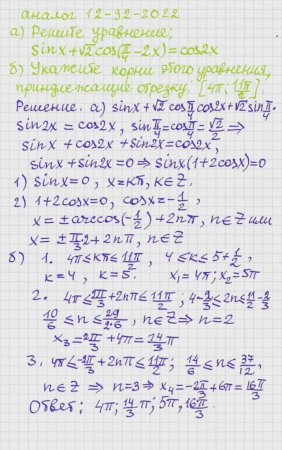 аналог 12-32-2022
а) Решите уравнение:
sinx+√2cos(π/4-2x)=cos2x
б) Укажите корни этого уравнения,
принадлежащие отрезку. [4π; 11π/2].
Решение. а) sinx+√2cosπ/4cos2x+√2sinπ/4·
sin2x = cos2x, sinπ/4=cosπ/4=√2/2 ⇒
sinx + cos2x + sin2x = cos2x,
sinx+sin2x=0 ⇒ sinx(1+2cosx)=0
1) sinx=0, x=кπ, к∈Z.
2) 1+2cosx=0, cosx=-1/2,
x = ±arccos(-1/2)+2πn, n∈Z или
x= ±π/3·2+2nπ, n∈Z
б) 1. 4π≤кπ≤11π/2, 4≤к≤5+1/2,
к=4, к=5. x₁=4π; x₂=5π
2. 4π≤2π/3+2πn≤11π/2; 4-2/3≤2n≤11/2-2/3
10/6≤n≤29/2·6, n∈Z ⇒ n=2
x₃=2π/3+4π=14π/3
3. 4π≤-2π/3+2πn≤11π/2; 14/6≤n≤37/12,
n∈Z ⇒ n=3 ⇒ x₄=-2π/3+6π=16π/3
Ответ: 4π; 14/3π; 5π, 16π/3.